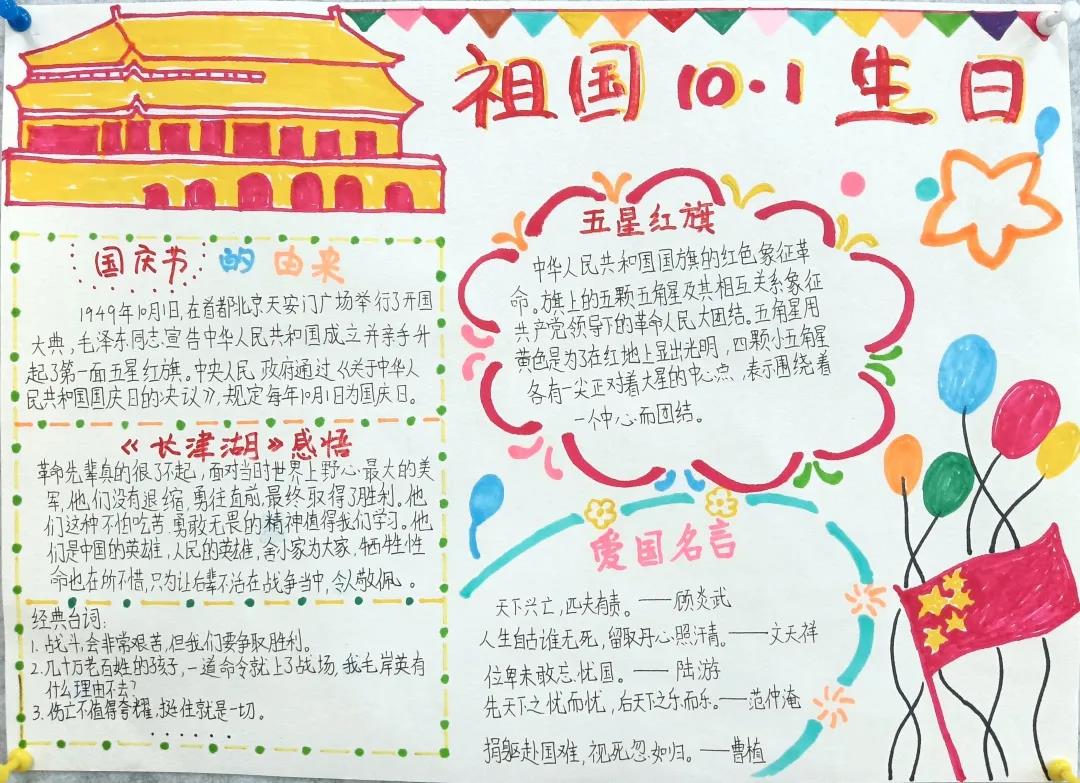 祖国10·1生日
国庆节的由来
1949年10月1日,在首都北京天安门广场举行了开国
大典,毛泽东同志宣告中华人民共和国成立并亲手升
起了第一面五星红旗。中央人民政府通过《关于中华人
民共和国国庆日的决议》,规定每年10月1日为国庆日。
《长津湖》感悟
革命先辈真的很了不起,面对当时世界上野心最大的美
军,他们没有退缩,勇往直前,最终取得了胜利。他
们这种不怕吃苦勇敢无畏的精神值得我们学习。他
们是中国的英雄,人民的英雄,舍小家为大家,牺牲性
命也在所不惜,只为让后辈不活在战争当中,令人敬佩。
经典台词:
1.战斗会非常艰苦,但我们要争取胜利。
2.几十万老百姓的孩子,一道命令就上了战场,我毛岸英有
什么理由不去?
3.伤亡不值得夸耀,挺住就是一切。
......
五星红旗
中华人民共和国国旗的红色象征革
命。旗上的五颗五角星及其相互关系象征
共产党领导下的革命人民大团结。五角星用
黄色是为了在红地上显出光明,四颗小五角星
各有一尖正对着大星的中心点,表示围绕着
一个中心而团结。
爱国名言
天下兴亡,匹夫有责。——顾炎武
人生自古谁无死,留取丹心照汗青。——文天祥
位卑未敢忘忧国。——陆游
先天下之忧而忧,后天下之乐而乐。——范仲淹
捐躯赴国难,视死忽如归。——曹植